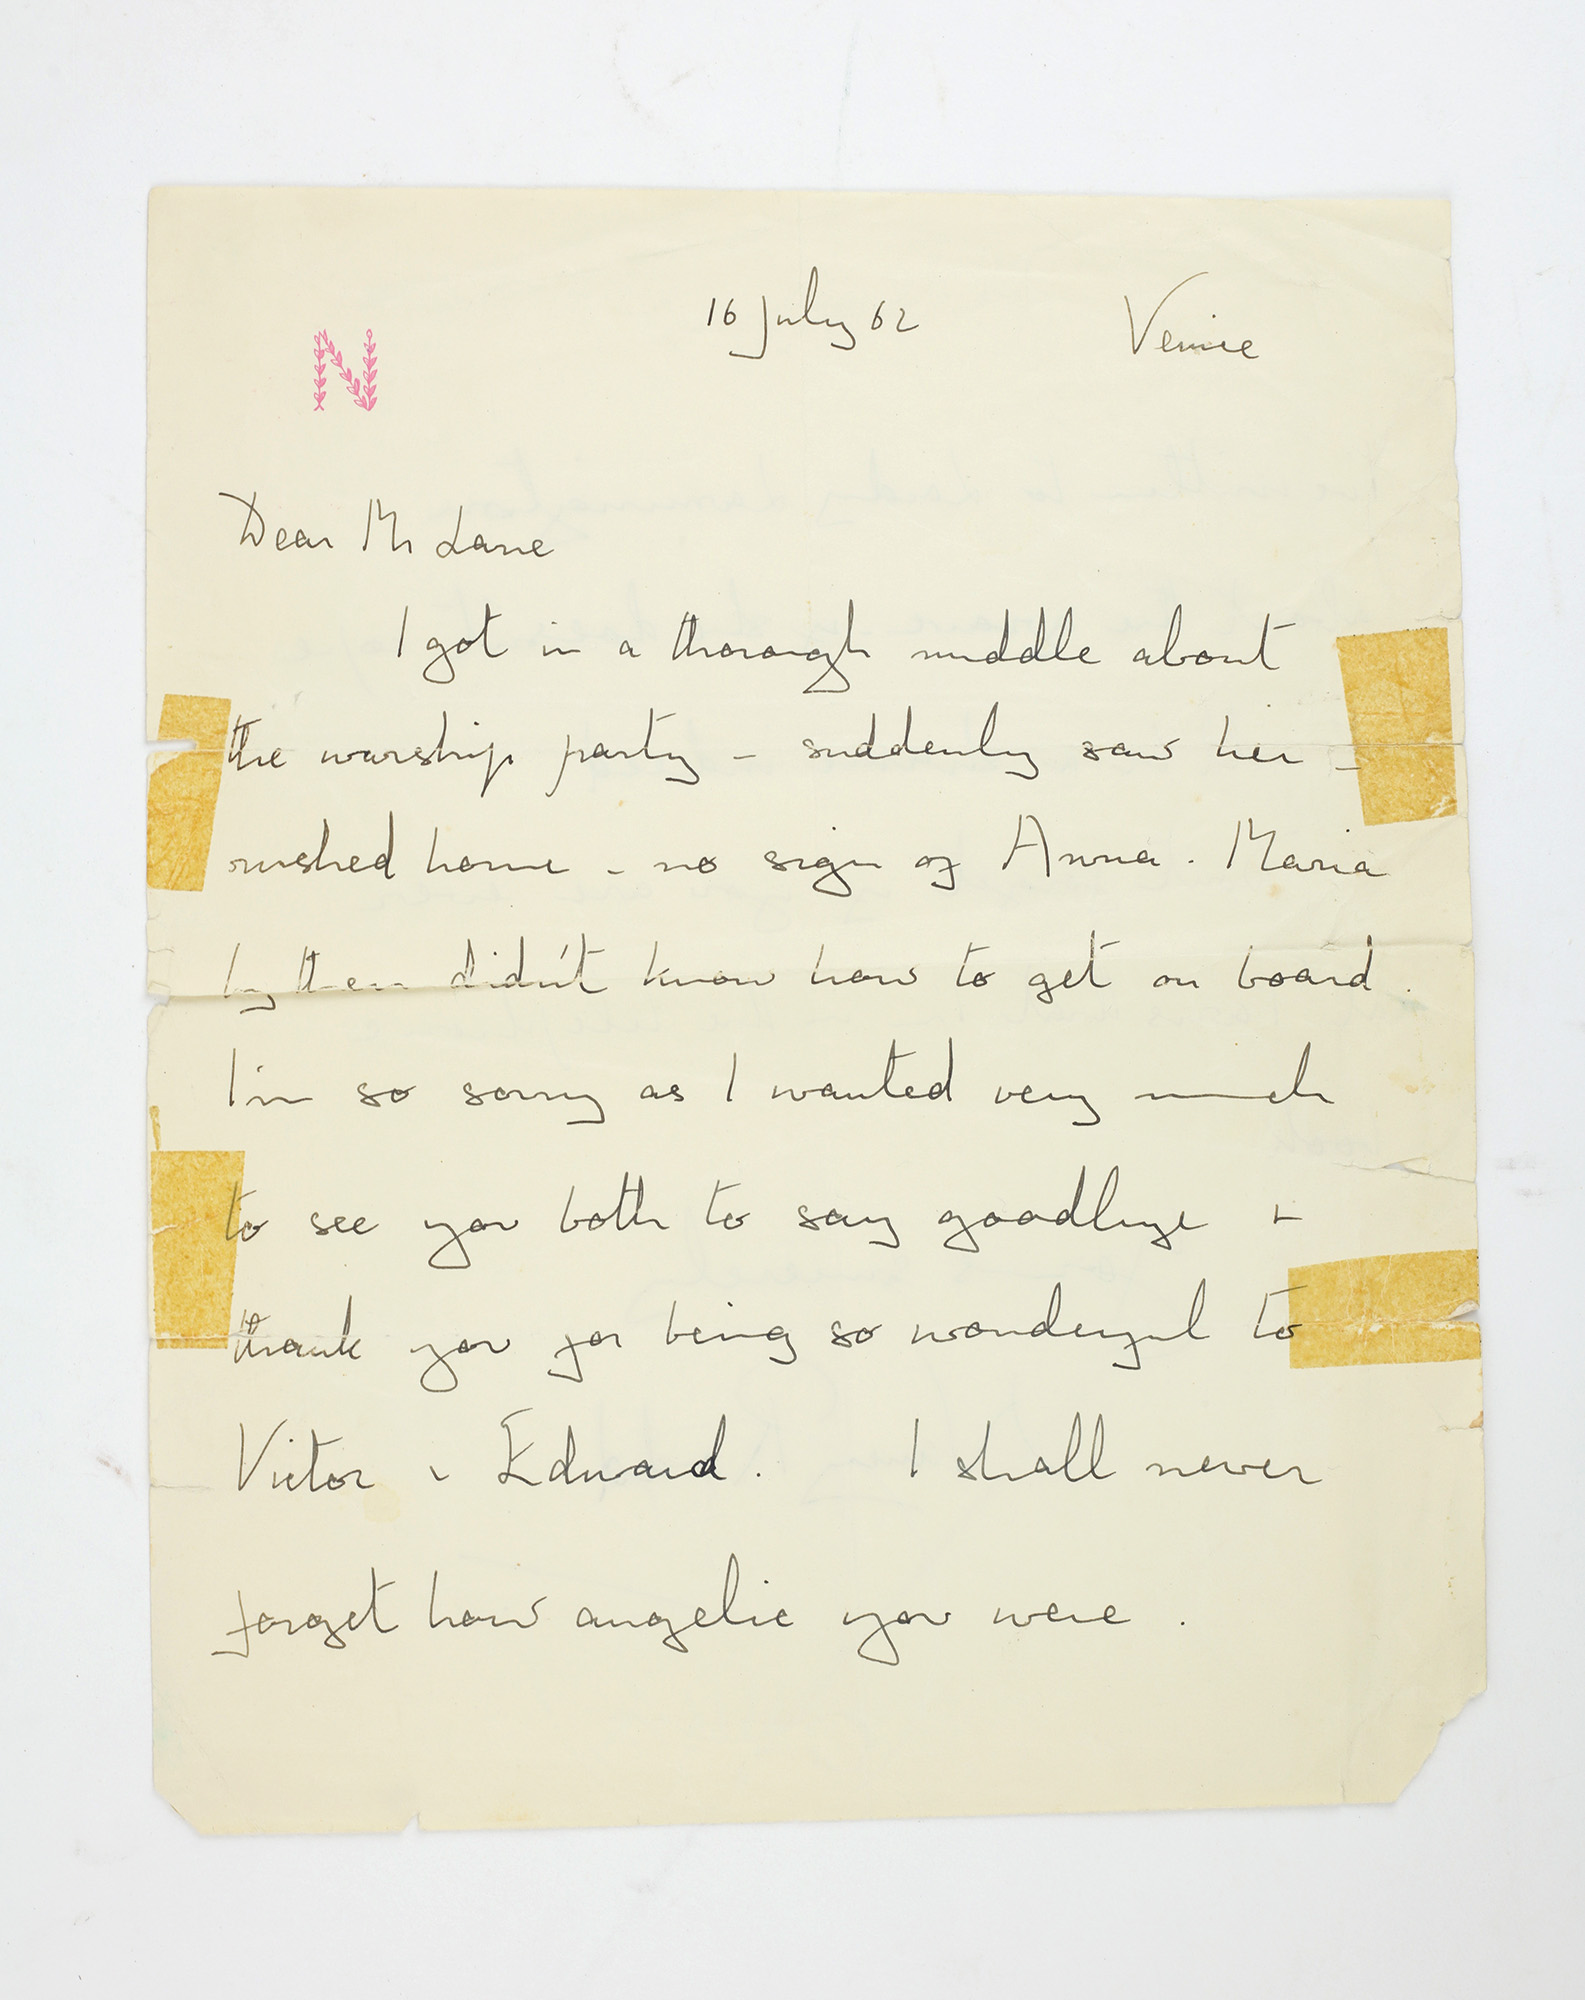 16 July 62 Venice
N
Dear Mr Lane
I got in a thorough muddle about
the warship party – suddenly saw her –
rushed home – no sign of Anna-Maria
by then didn't know how to get on board.
I'm so sorry as I wanted very much
to see you both to say goodbye +
thank you for being so wonderful to
Victor + Edward. I shall never
forget how angelic you were.